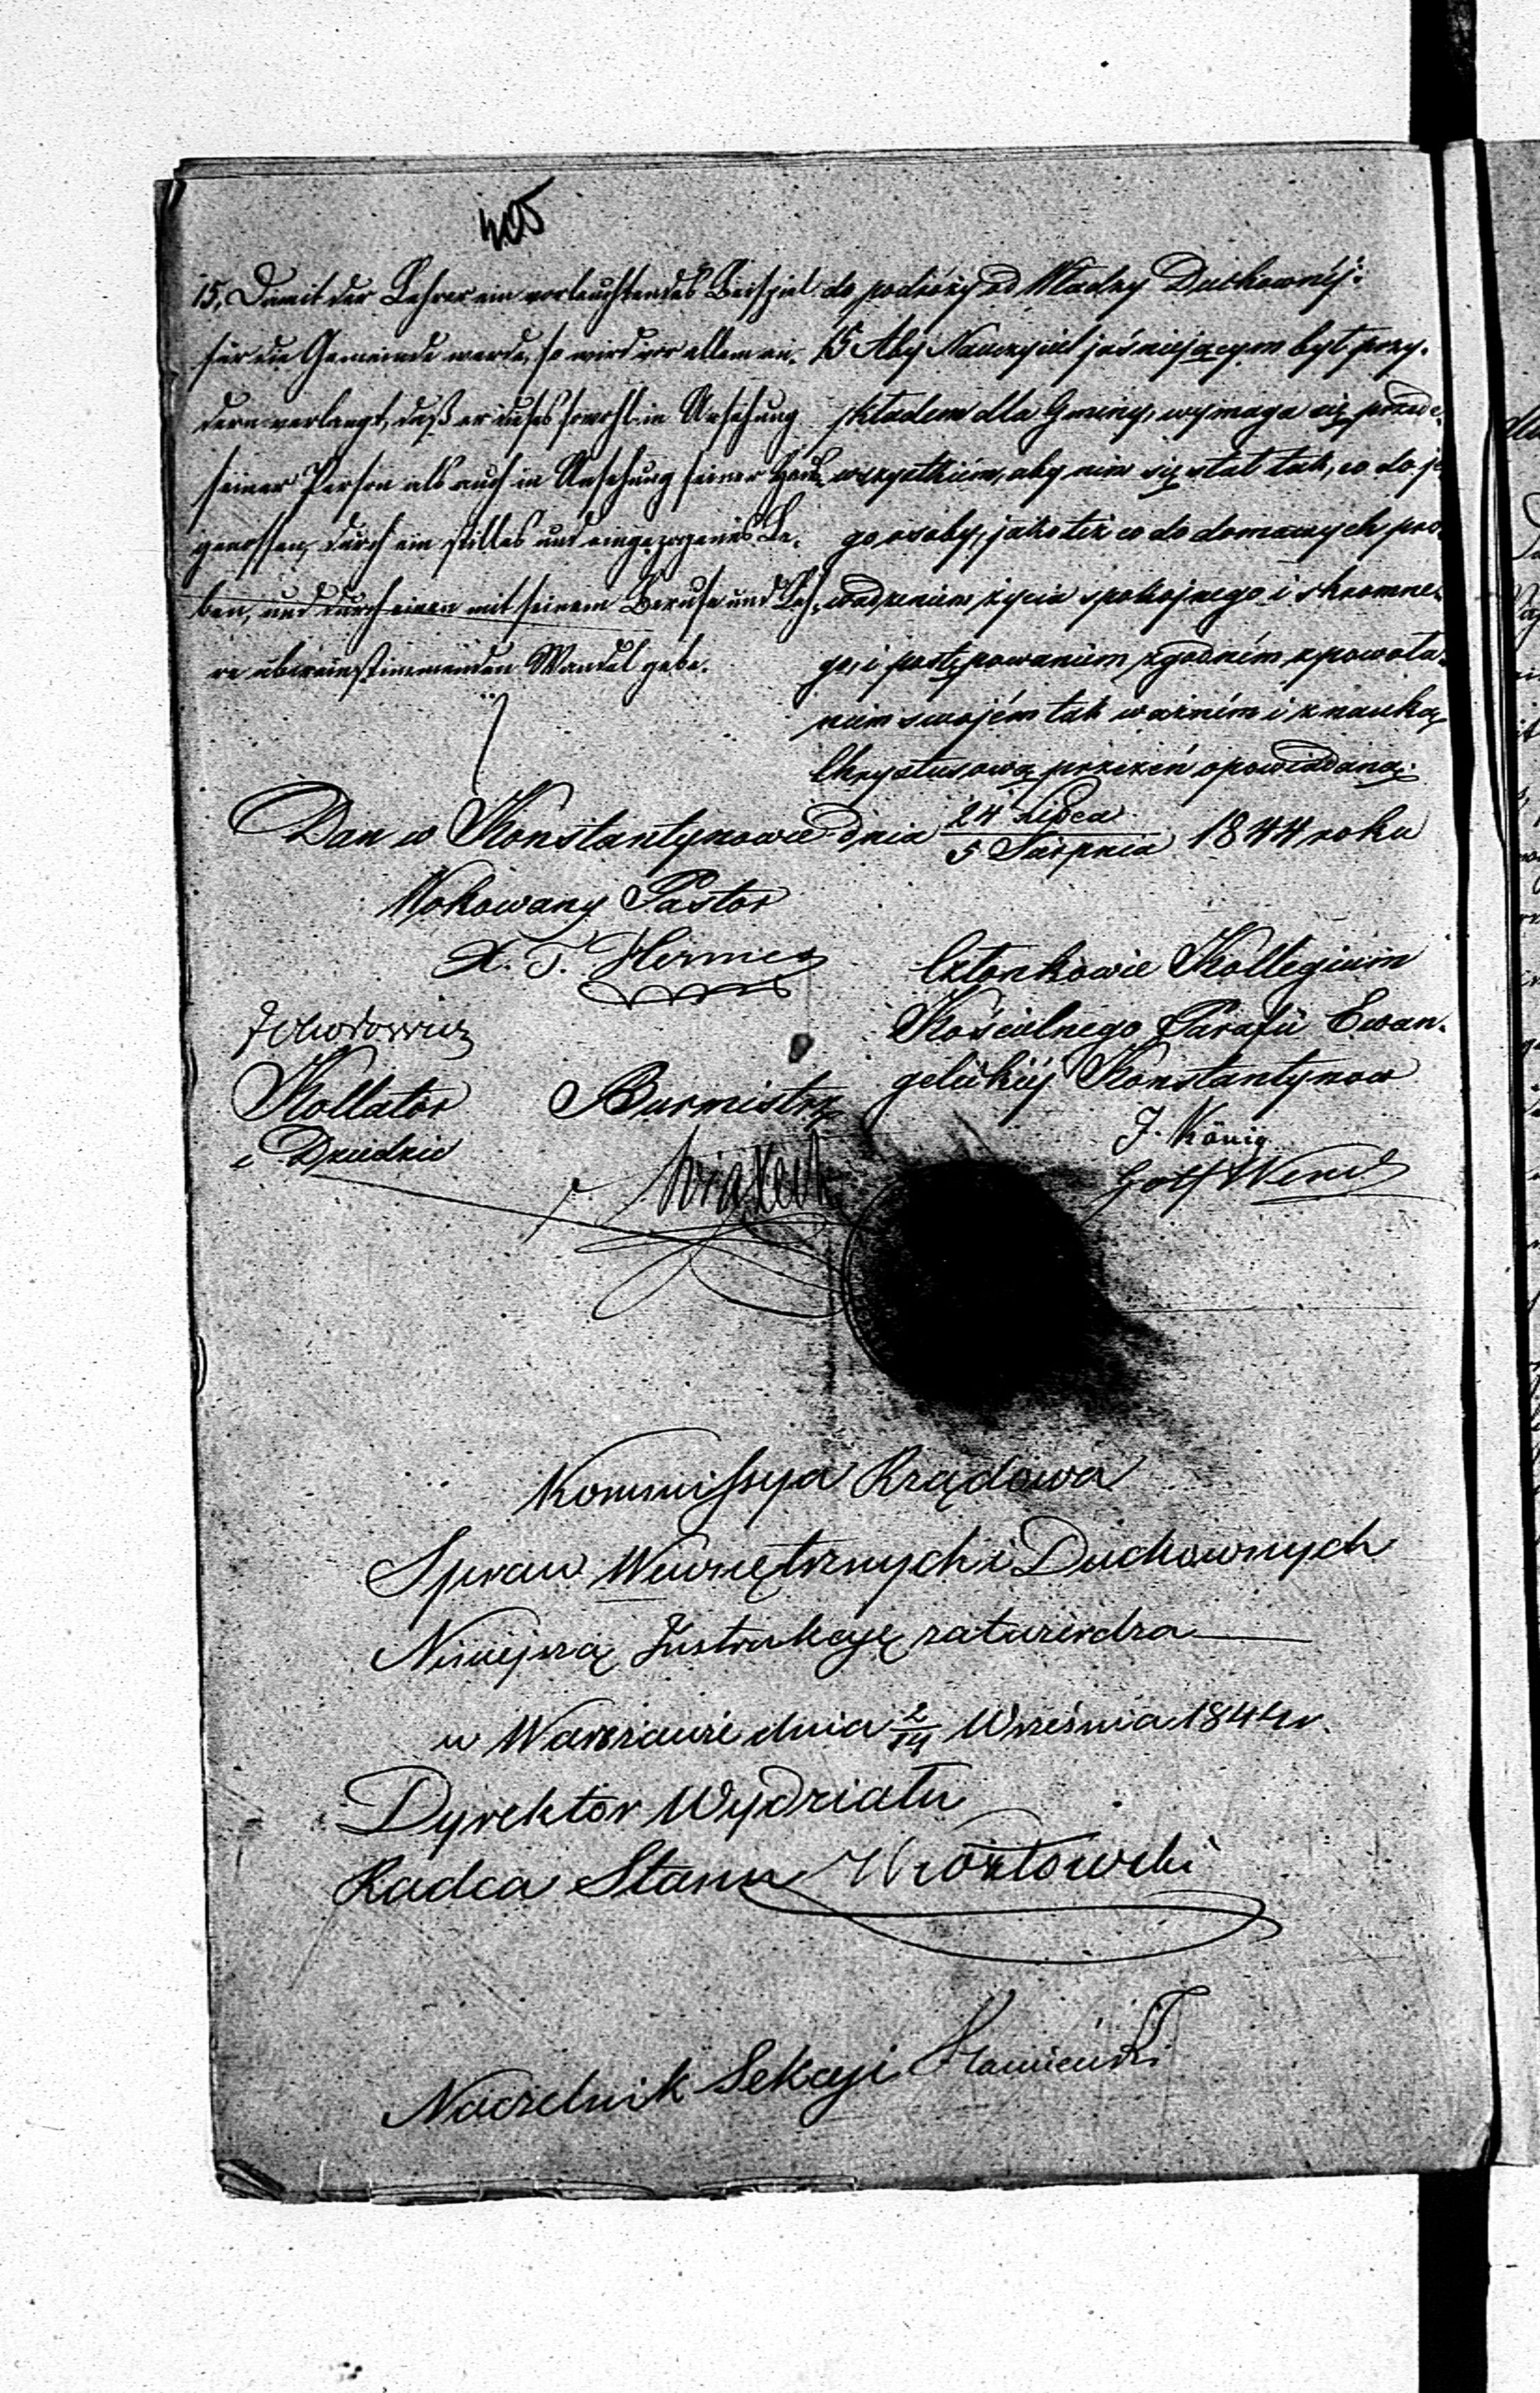 405
15, Damit der Lehrer ein vorleuchtendes Beispiel
für die Gemeinde werde, so wird vor allem an-
dern verlangt, daß er dieses sowohl in Ansehung
seiner Person als auch in Ansehung seiner Haus-
genossen, durch ein stilles und eingezogenes Le-
ben, und durch einen mit seinem Berufe und Leh-
re übereinstimmenden Wandel gebe.
do podróży od Władzy Duchownéj:
15 Aby Nauczyciel jaśniejącym był przy-
kładem dla Gminy, wymaga się przede
wszystkiém, aby nim się stał tak, co do je
go osoby, jako też co do domowych pro-
wadzeniem życia spokojnego i skromne-
go, i postępowaniem zgodném z powoła-
niem swojém tak ważném i z nauką
Chrystusową przezeń opowiadaną.
Dan w Konstantynowie dnia 24 Lipca / 5 Sierpnia 1844 roku
Wokowany Pastor
X. T. Hirnie
Członkowie Kollegium
Kościelnego Parafii Ewan-
gelickiéj Konstantynow
Kollator
i Dziedzic
Burmistrz
J. König
Gottf Wende
Kommissya Rządowa
Spraw Wewnętrznych i Duchownych
Niniejszą Instrukcyę zatwierdza
w Warszawie dnia 2/14 Września 1844 r.
Dyrektor Wydziału
Radca Stanu
Naczelnik Sekcyi